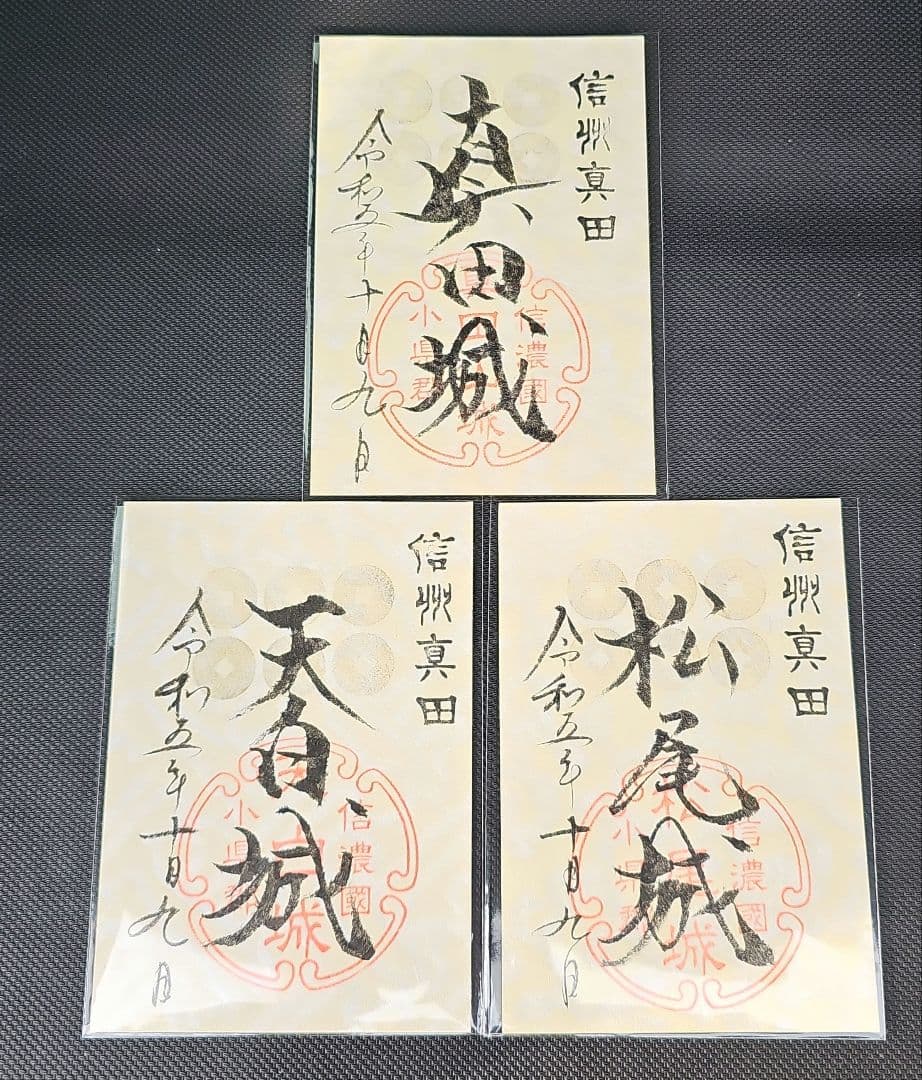 信州真田
真田城
令和五年十月九日
信濃國
小県郡
信州真田
天白城
令和五年十月九日
信濃國
小県
城
信州真田
松尾城
令和五年十月九日
信濃國
小県
城